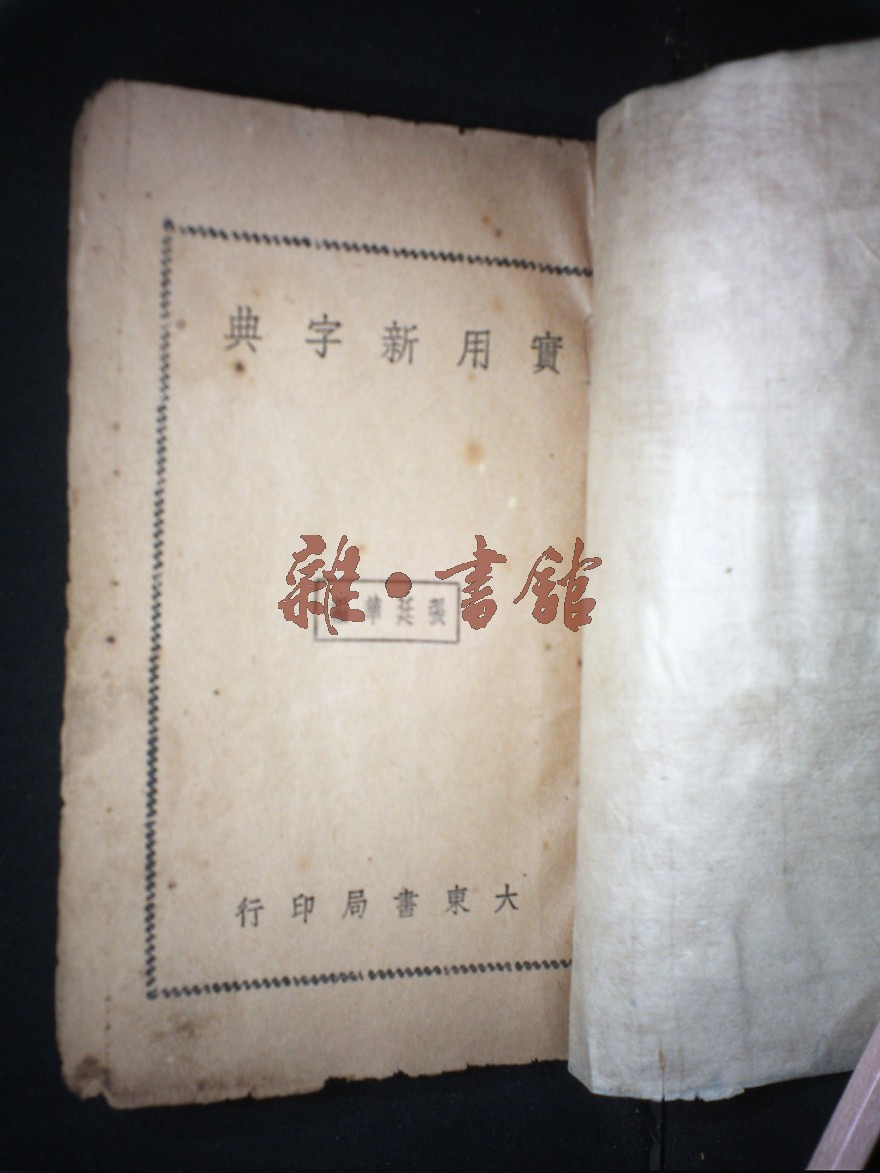 實用新字典
雜·書館
張廷華
大東書局印行